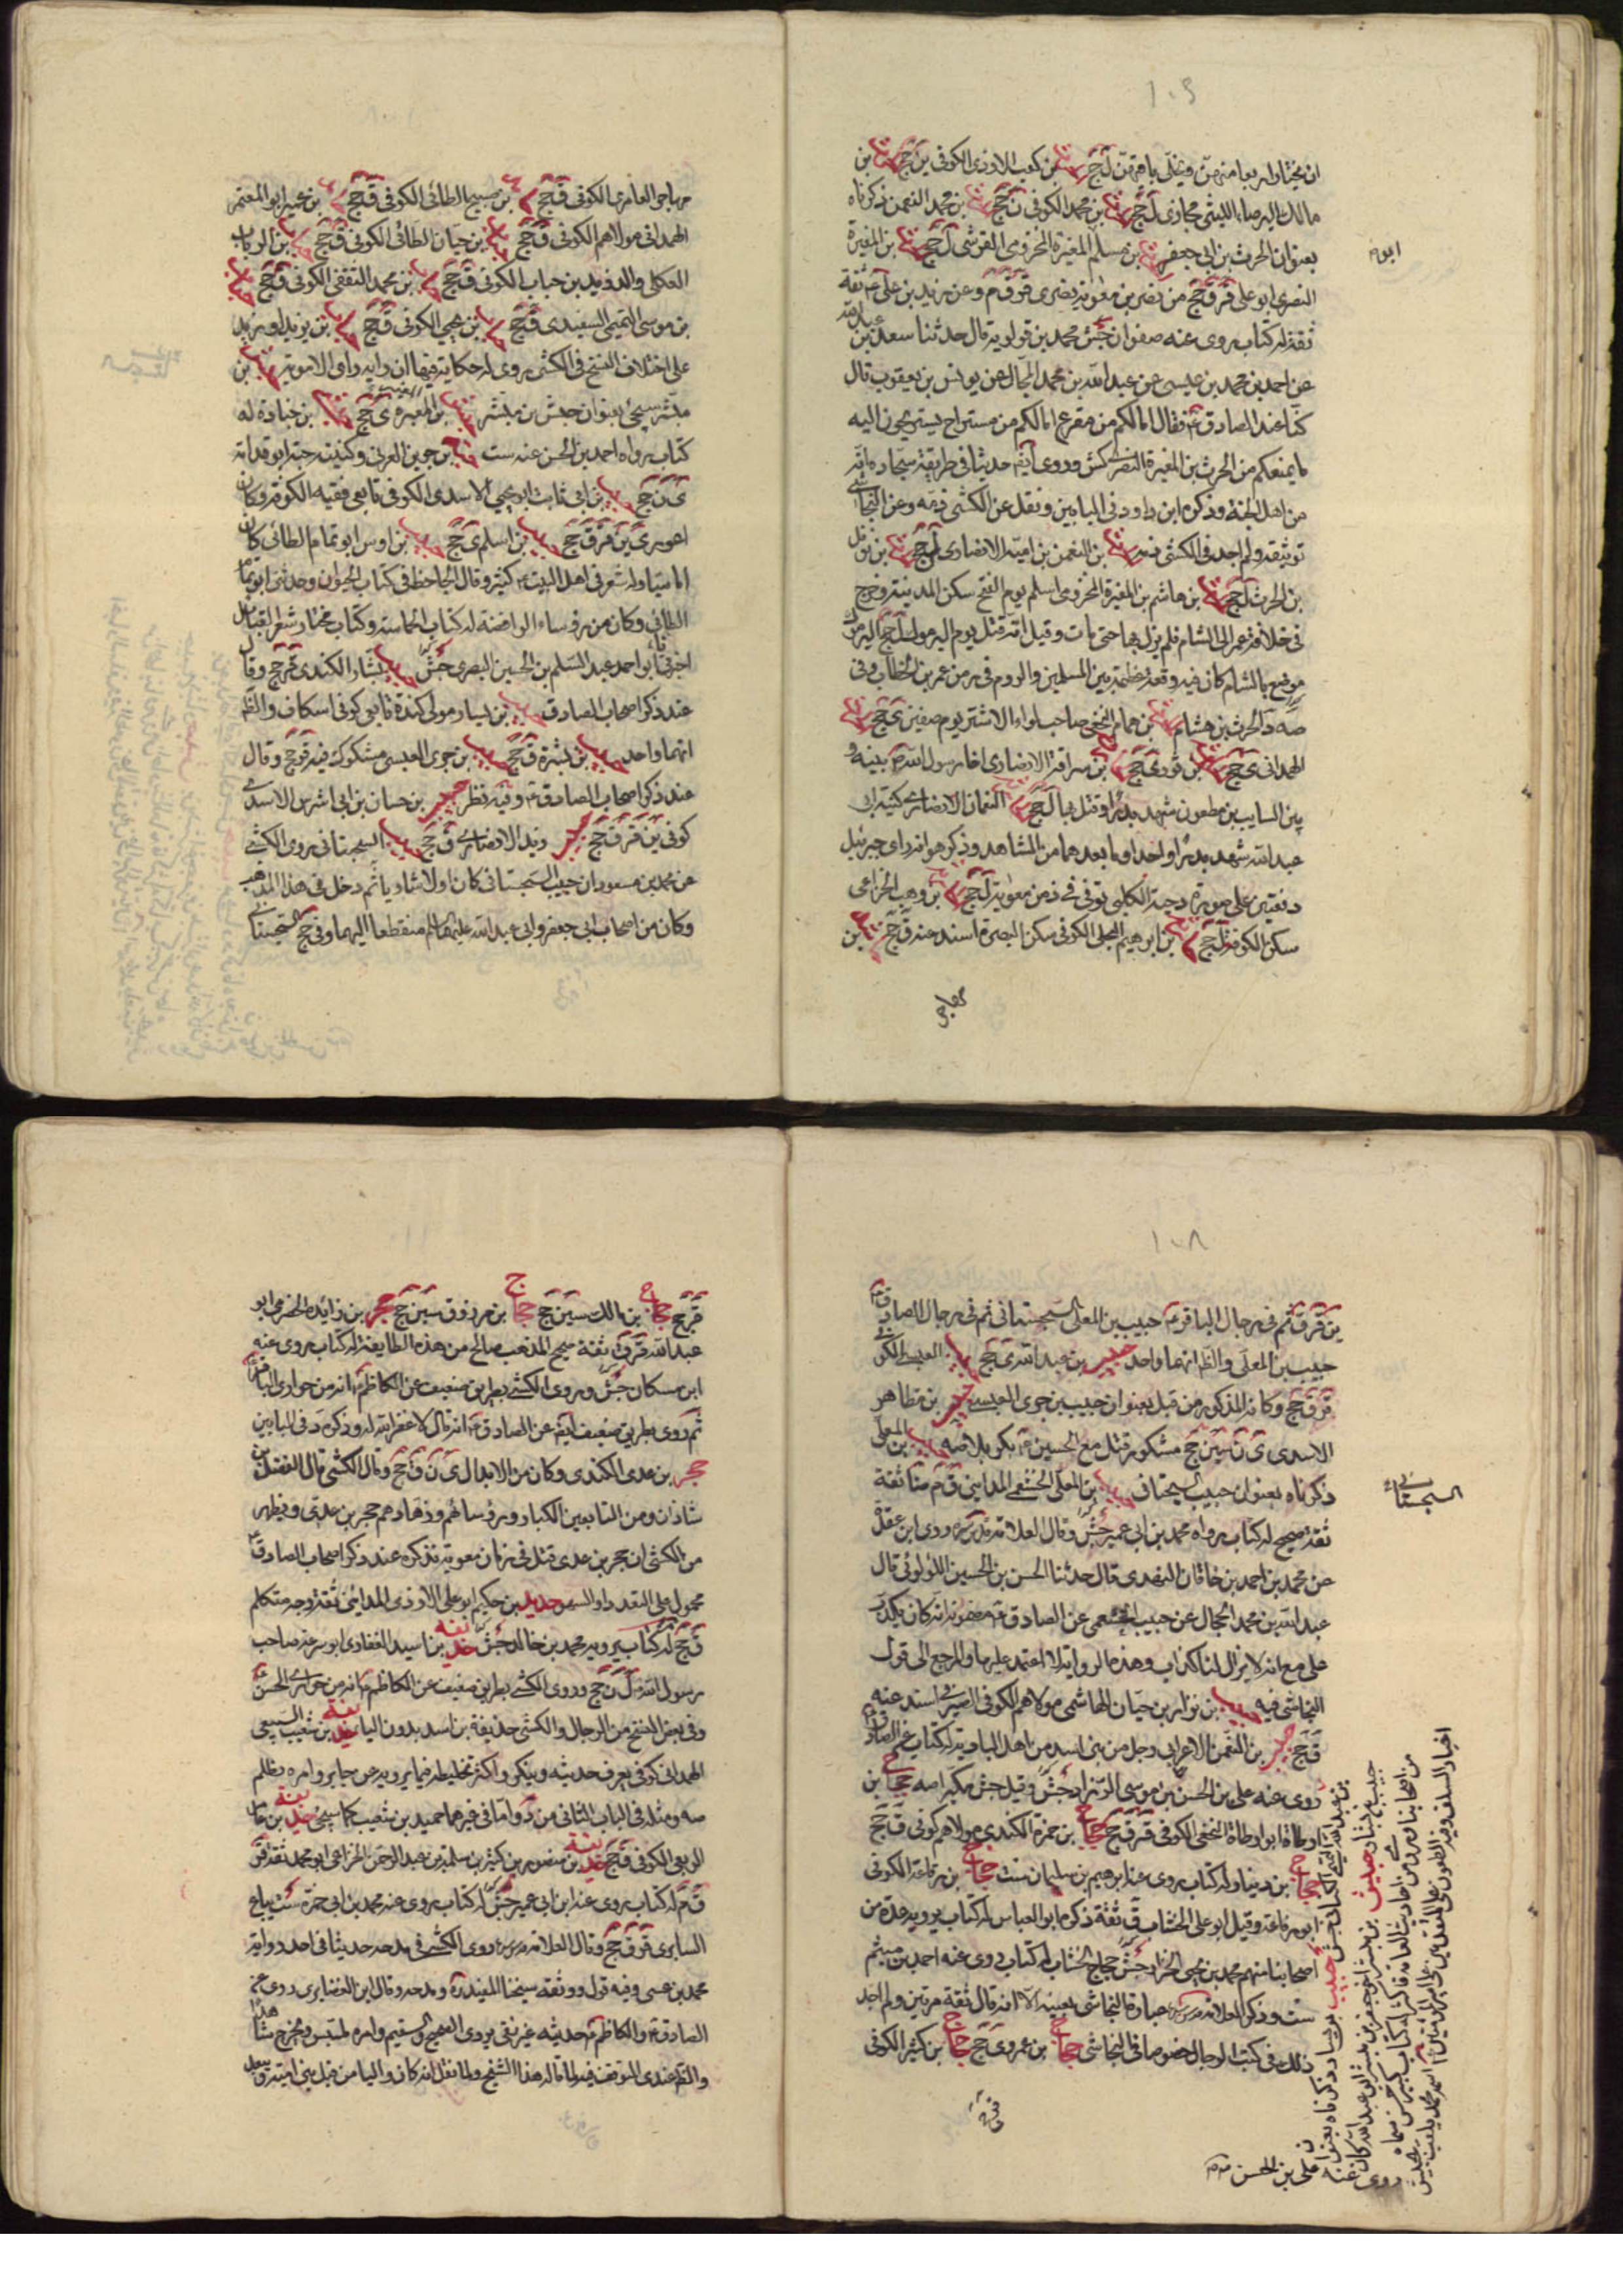 ١٠٩
ان يختار اربعا منهن ويخلى باقيهن ل جج بن كعب الازدى الكوفى ين جج بن
مالك البرصاء الليثى حجازى ل جج بن محمد الكوفى ق جج بن محمد النعمن ذكرناه
بعنوان الحرث بن ابى جعفر بن مسلم المغيرة المخزومى القرشى ل جج بن المغيرة
النصرى ابو على قر ق جج من نصر بن معوية بصرى قر ق م وعن زيد بن على ع ثقة
ثقة له كتاب يروى عنه صفوان جش محمد بن قولويه قال حدثنا سعد بن عبد الله
عن احمد بن محمد بن عيسى عن عبد الله بن محمد الحجال عن يونس بن يعقوب قال
كنا عند الصادق ع فقال اما لكم من مفزع اما لكم من مستراح تستريحون اليه
ما يمنعكم من الحرث بن المغيرة النصرى كش وروى ايضا حديثا فى طريقه سجادة انه
من اهل الجنة وذكره ابن داود فى البابين ونقل عن الكشى ذمه وعن النجاشى
توثيقه ولم اجد فى الكشى ذمه بن النعمن بن امية الانصارى ل جج بن نوفل
بن الحرث ل جج بن هاشم بن المغيرة المخزومى اسلم يوم الفتح سكن المدينة وخرج
فى خلافة عمر الى الشام فلم يزل بها حتى مات وقيل انه قتل يوم اليرموك ل جج اليرموك
موضع بالشام كان فيه وقعة عظيمة بين المسلمين والروم فى زمن عمر بن الخطاب وفى
صه د الحرث بن هشام بن همام النخعى صاحب لواء الاشتر يوم صفين ى جج
الهمدانى ى جج بن قروى جج بن سراقة الانصارى اخا رسول الله ص بينه و
بين السايب بن مطعون شهد بدرا وقتل بها ل جج النعمان الانصارى كنيته ابى
عبد الله شهد بدرا واحدا وما بعدهما من المشاهد وذكر هو انه راى جبرئيل
دفعتين على صورة دحية الكلبى توفى فى زمن معوية ل جج بن وهب الخزاعى
سكن الكوفة ل جج بن ابرهيم البجلى الكوفى سكن البصرة اسند عنه ق جج بن
مهاجر
مهاجر العامرى الكوفى ق جج بن مسيح الطائى الكوفى ق جج بن عمير ابو المعتمر
الهمدانى مولاهم الكوفى ق جج بن حيان الطائى الكوفى ق جج بن الريان
العكلى والد زيد بن حباب الكوفى ق جج بن محمد الثقفى الكوفى ق جج
بن موسى التميمى السعيدى ق جج بن يحيى الكوفى ق جج بن يزيد او بريد
على اختلاف النسخ فى الكشى يروى له حكاية فيها انه رايه راى الاموية بن
مبشر سيجئ بعنوان حبش بن مبشر بن المغيرة ى جج بن جنادة له
كتاب رواه احمد بن الحسن عنه ست بن جوين العرنى وكنية حبة ابو قدامة
ى ن جج بن ابى ثابت ابو يحيى الاسدى الكوفى تابعى فقيه الكوفة وكان
اعور ى ين قر ق جج بن اسلم ى جج بن اوس ابو تمام الطائى كان
اماميا وله شعر فى اهل البيت ع كثير وقال الجاحظ فى كتاب الحيوان وحدثنى ابو تمام
الطائى وكان من رؤساء الرافضة له كتاب الحماسة وكتاب مختار شعر القبائل
اخبرنا ابو احمد عبد السلم بن الحسين البصرى جش بشار الكندى قر جج وقال
عند ذكر اصحاب الصادق بن يسار مولى كندة تابعى كوفى اسكاف والظ
انهما واحد بن بشرة ق جج بن جرى العبسى مشكوك فيه ق جج وقال
عند ذكر اصحاب الصادق ع وفيه نظر بن حسان بن ابى اشرس الاسدى
كوفى ين قر ق جج وزيد الانصارى ق جج السجستانى روى الكشى
عن محمد بن مسعود ان حبيب السجستانى كان اولا شاريا ثم دخل فى هذا المذهب
وكان من اصحاب ابى جعفر وابى عبد الله عليهما السلم منقطعا اليهما وفى جج السجستانى
١٠٨
ين قر ق ثم فى رجال الباقر ع حبيب بن المعلى السجستانى ثم فى رجال الصادق ع
حبيب بن المعلى والظ انهما واحد بن عبد الله ى جج العبسى الكوفى
قر ق جج وكانه المذكور من قبل بعنوان حبيب بن جرى العبسى بن مظاهر
الاسدى ى ن سين جج مشكور قتل مع الحسين ع بكربلا صه بن المعلى
ذكرناه بعنوان حبيب السجستانى بن المعلى الخثعمى المدائنى ق م ضا ثقة
ثقة صحيح له كتاب رواه محمد بن ابى عمير جش وقال العلامة وروى ابن عقدة
عن محمد بن احمد بن خاقان النهدى قال حدثنا الحسن بن الحسين اللؤلوئى قال
عبد الله بن محمد الحجال عن حبيب الخثعمى عن الصادق ع مضمونه انه كان يكذب
على مع انه لا يزال لنا كذاب وهذه الرواية لا اعتمد عليها والمرجع الى قول
النجاشى فيه بن نزار بن حيان الهاشمى مولاهم الكوفى الصيرفى اسند عنه
ق جج بن النعمن الاعرابى رجل من بنى اسد من اهل البادية له كتاب عن الصادق ع
روى عنه على بن الحسن بن موسى الزراد جش وقيل جش مكبرا صه حجاج بن
ارطاة ابو ارطاة النخعى الكوفى قر ق جج حجاج بن حمزة الكندى مولاهم كوفى ق جج
حجاج بن دينار له كتاب روى عنه ابرهيم بن سليمان ست حجاج بن رفاعة الكوفى
ابو رفاعة وقيل ابو على الخشاب ق ثقة ذكره ابو العباس له كتاب يرويه عدة من
اصحابنا منهم محمد بن يحيى الخزاز جش حجاج الخشاب له كتاب روى عنه احمد بن ميثم
ست وذكر العلامة عبارة النجاشى بعينه الا انه قال ثقة مرتين ولم اجد
ذلك فى كتب الرجال خصوصا فى النجاشى حجاج بن عمرو ى جج حجاج بن كثير الكوفى
السجستانى
قر جج حجاج بن مالك سين جج حجاج بن مرزوق سين جج حجر بن زايدة الحضرمى ابو
عبد الله قر ق ثقة صحيح المذهب صالح من هذه الطايفة له كتاب يروى عنه
ابن مسكان جش وروى الكشى بطريق ضعيف عن الكاظم ع انه من حوارى الباقر
ثم روى بطريق ضعيف ايضا عن الصادق ع انه قال لا غفر الله له وذكره د فى البابين
حجر بن عدى الكندى وكان من الابدال ى ن ق جج وقال الكشى قال الفضل بن
شاذان ومن التابعين الكبار ورؤسائهم وزهادهم حجر بن عدى ويظهر
من الكشى ان حجر بن عدى قتل فى زمان معوية فذكره عند ذكر اصحاب الصادق ع
محمول على التعدد او السهو حديد بن حكيم ابو على الازدى المدائنى ثقة وجه متكلم
ق جج له كتاب يرويه محمد بن خالد جش حذيفة بن اسيد الغفارى ابو سرعة صاحب
رسول الله ل ن جج وروى الكشى بطريق ضعيف عن الكاظم ع انه من حوارى الحسن ع
وفى بعض النسخ من الرجال والكشى حذيفة بن اسد بدون الياء حذيفة بن شعيب السبيعى
الهمدانى كوفى يعرف حديثه وينكر واكثر تخليطه فيما يرويه عن جابر وامره مظلم
صه ومثله فى الباب الثانى من د واما فى غيرهما حميد بن شعيب كما سيجئ حذيفة بن عامر
الربعى الكوفى ق جج حذيفة بن منصور بن كثير بن سلمة بن عبد الرحمن الخزاعى ابو محمد ثقة قر
ق م له كتاب يروى عنه ابن ابى عمير جش له كتاب يروى عنه محمد بن ابى حمزة ست بياع
السابرى قر ق جج وقال العلامة روى الكشى فى مدحه حديثا فى احد رواته
محمد بن عيسى وفيه قول ووثقه شيخنا المفيد ره ومدحه وقال ابن الغضايرى روى عن
الصادق ع والكاظم ع حديثه غير نقى يروى الصحيح والسقيم وامره ملتبس ويخرج شاهدا
والظ عندى التوقف فيه لما قاله هذا الشيخ ولما نقل انه كان واليا من قبل بنى امية ويبعد